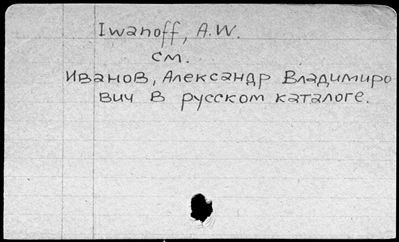 Iwanoff, A.W.
см.
Иванов, Александр Владимиро
вич в русском каталоге.